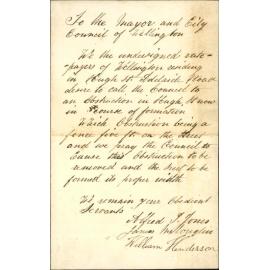 To the Mayor and City
Council of Wellington
We the undersigned rate-
payers of Wellington residing
in Hugh St Adelaide Road
desire to call the Council to
an Obstruction in Hugh St now
in Course of formation
Which Obstruction being a
fence five ft. on the Street
and we pray the Council to
Cause this Obstruction to be
removed and the Street to be
formed its proper width
We remain your Obedient
Servants
Alfred J. Jones
James
William Henderson